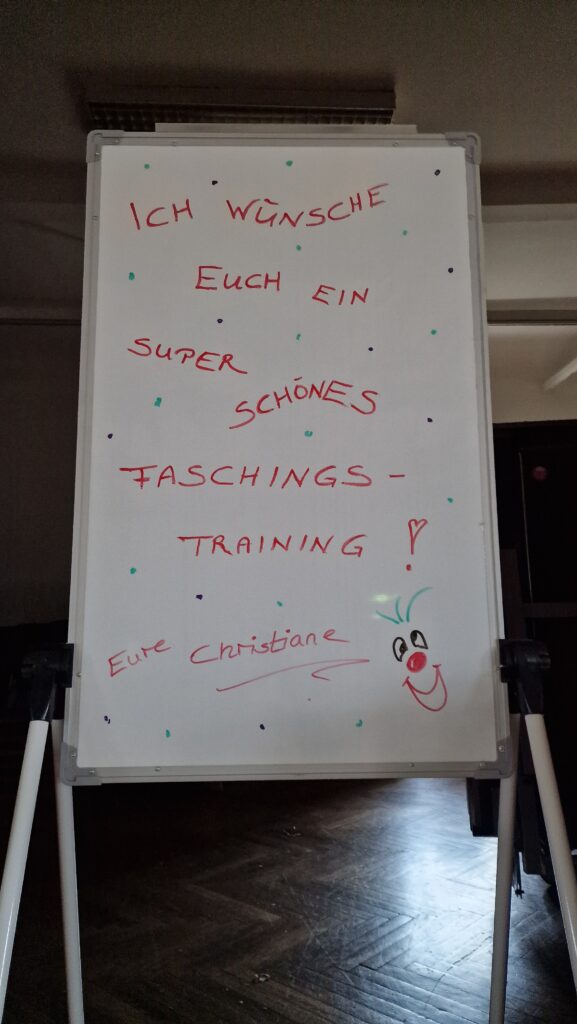 ICH WÜNSCHE
EUCH EIN
SUPER
SCHÖNES
FASCHINGS-
TRAINING!
Eure Christiane